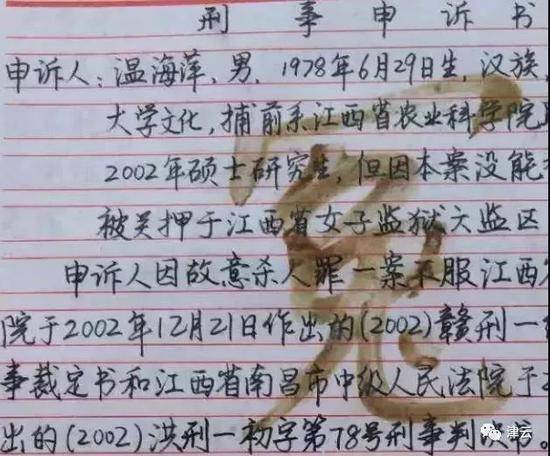 刑事申诉书
申诉人:温海萍,男,1978年6月29日生,汉族,
大学文化,捕前系江西省农业科学院
2002年硕士研究生,但因本案没能
被关押于江西省女子监狱六监区
申诉人因故意杀人罪一案不服江西
院于2002年12月21日作出的(2002)赣刑一
事裁定书和江西省南昌市中级人民法院于2
出的(2002)洪刑一初字第78号刑事判决书。
冤
津云